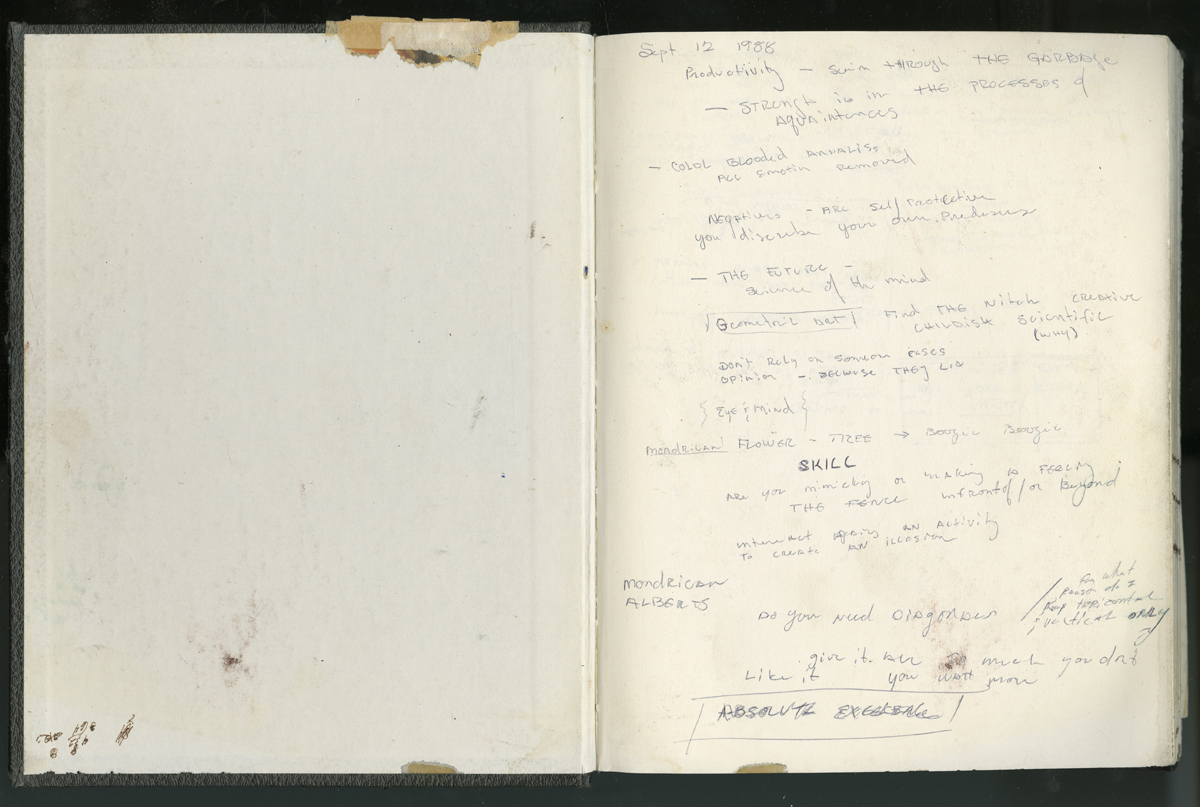 Sept 12 1988
Productivity – Swim through THE GARBAGE
– STRENGth is in THE PROCESSES of
AQUAintences
– COLD BLOODED ANNALISS
ALL Emotin Removed
NEgAtives – ARE Self Protective
you discribe your own
– THE FUTURE –
Science of the mind
Geometric ART Find THE Nitch CREATIVE
CHILDISH Scientific
(WHY)
DON'T Rely on Someone ELSES
Opinion – BECAUSE THEY LIE
{ Eye & Mind }
mondrican FLOWER – TREE → Boogie Boogie
SKILL
ARE you mimicing or making A FEELING ;
THE FENCE infrontof / or Beyond
interact AN Activity
TO CREATE AN illosion
mondrican
ALBERTS
DO you NEED DIAGONALS
for what
Reason do I
Keep Horizontal
; vertical ONLY
give it. much you don't
Like it you WANT more
ABSOLUTE